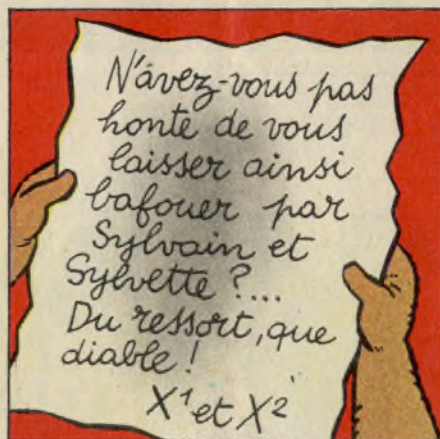 N'avez-vous pas
honte de vous
laisser ainsi
bafouer par
Sylvain et
Sylvette ?...
Du ressort, que
diable !
X¹ et X²